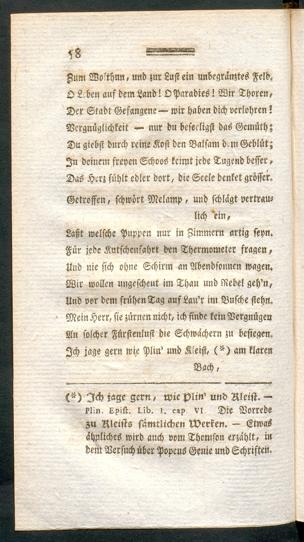 58
Zum Wolthun, und zur Lust ein unbegränztes Feld.
O L.ben auf dem Land! O Paradies! Wir Thoren,
Der Stadt Gefangene — wir haben dich verlohren!
Vergnüglichkeit — nur du beseeligst das Gemüth;
Du giebst durch reine Kost den Balsam d.m Geblüt;
In deinem freyen Schoos keimt jede Tugend besser,
Das Herz fühlt edler dort, die Seele denket grösser.
Getroffen, schwört Melamp, und schlägt vertrau-
lich ein,
Laßt welsche Puppen nur in Zimmern artig seyn.
Für jede Kutschenfahrt den Thermometer fragen,
Und nie sich ohne Schirm an Abendsonnen wagen.
Wir wollen ungescheut im Thau und Nebel geh'n,
Und vor dem frühen Tag auf Lau'r im Busche stehn.
Mein Herr, sie zürnen nicht, ich finde kein Vergnügen
An solcher Fürstenlust die Schwächern zu besiegen.
Ich jage gern wie Plin' und Kleist, (*) am klaren
Bach,
(*) Ich jage gern, wie Plin' und Kleist. —
Plin. Epist. Lib. I. cap VI. Die Vorrede
zu Kleists sämtlichen Werken. — Etwas
ähnliches wird auch vom Thomson erzählt, in
dem Versuch über Popens Genie und Schriften.